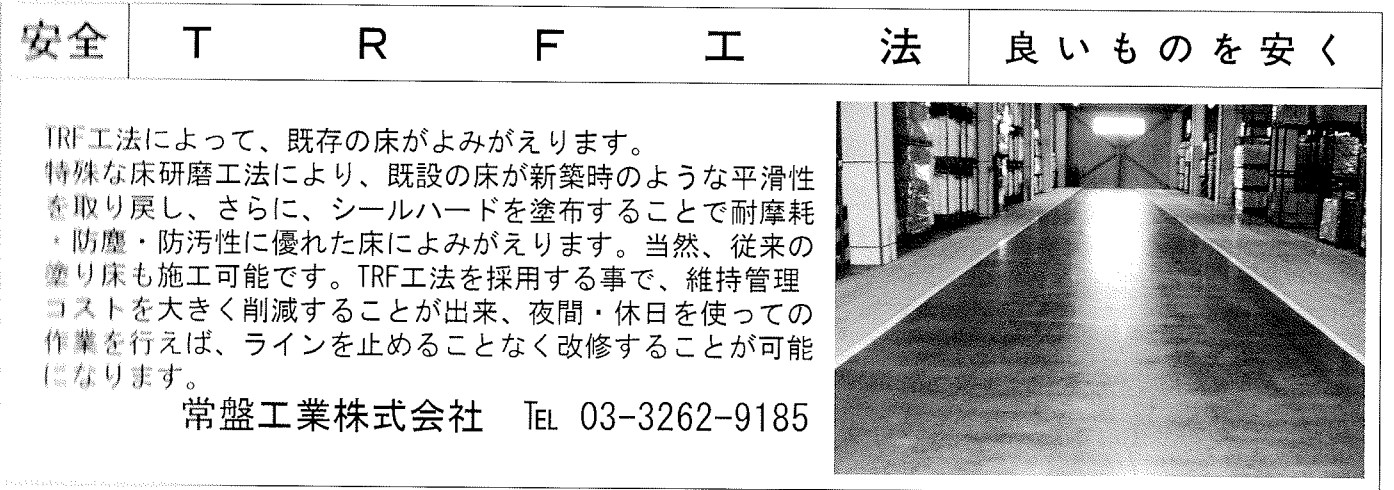 安全 TRF工法 良いものを安く
TRF工法によって、既存の床がよみがえります。
特殊な床研磨工法により、既設の床が新築時のような平滑性
を取り戻し、さらに、シールハードを塗布することで耐摩耗
・防塵・防汚性に優れた床によみがえります。当然、従来の
塗り床も施工可能です。TRF工法を採用する事で、維持管理
コストを大きく削減することが出来、夜間・休日を使っての
作業を行えば、ラインを止めることなく改修することが可能
になります。
常盤工業株式会社 TEL 03-3262-9185